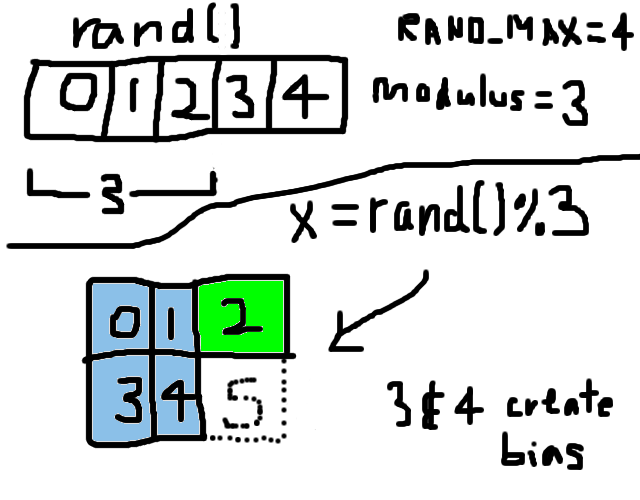 rand()
RAND_MAX=4
0 1 2 3 4
modulus=3
3
x=rand()%3
0 1 2
3 4 5
3 & 4 create
bias